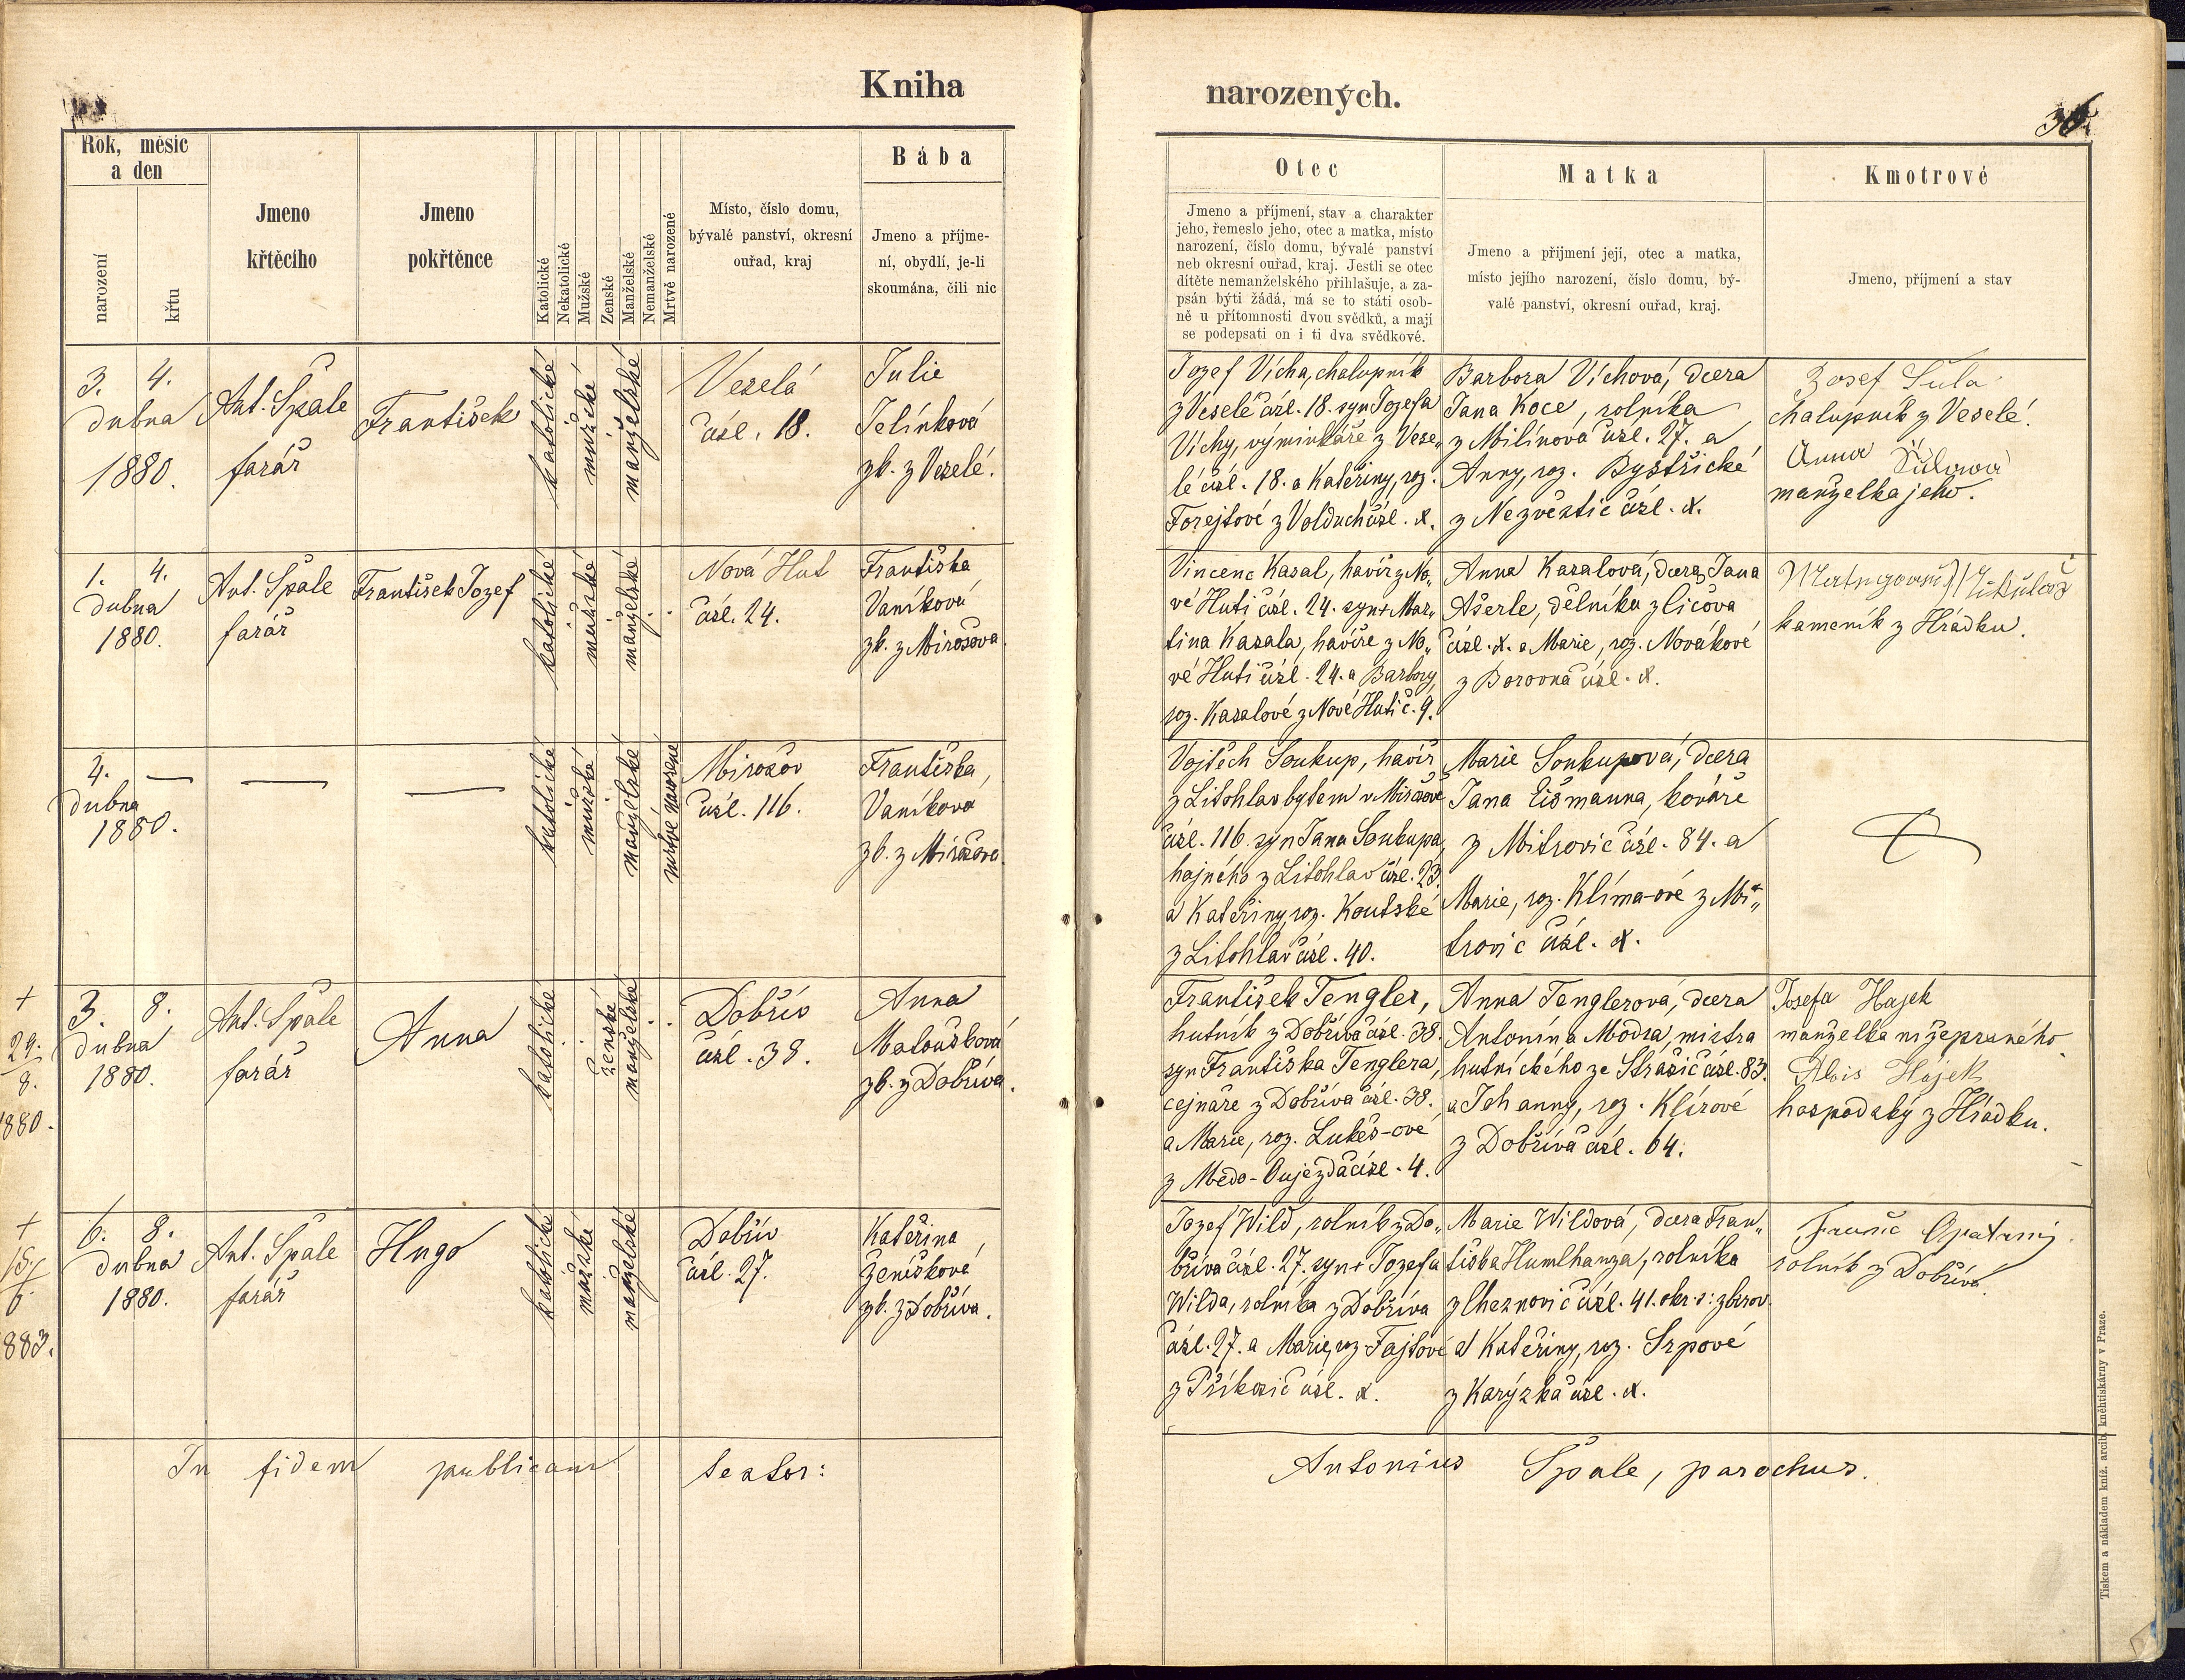 Kniha narozených.
36.
Rok, měsíc
a den
narození
křtu
Jmeno
křtěcího
Jmeno
pokřtěnce
Katolické
Nekatolické
Mužské
Ženské
Manželské
Nemanželské
Mrtvě narozené
Místo, číslo domu,
bývalé panství, okresní
ouřad, kraj
Bába
Jmeno a příjme-
ní, obydlí, je-li
skoumána, čili nic
Otec
Jmeno a příjmení, stav a charakter
jeho, řemeslo jeho, otec a matka, místo
narození, číslo domu, bývalé panství
neb okresní ouřad, kraj. Jestli se otec
dítěte nemanželského přihlašuje, a za-
psán býti žádá, má se to státi osob-
ně u přítomnosti dvou svědků, a mají
se podepsati on i ti dva svědkové.
Matka
Jmeno a přijmení její, otec a matka,
místo jejího narození, číslo domu, bý-
valé panství, okresní ouřad, kraj.
Kmotrové
Jmeno, příjmení a stav
3. 4.
dubna
1880.
Ant. Špale
farář
František
katolické
mužské
manželské
Veselá
čísl. 18.
Julie
Jelínková
zk. z Veselé.
Jozef Vícha, chalupník
z Veselé čísl. 18. syn Jozefa
Víchy, výminkáře z Vese„
lé čísl. 18. a Kateřiny, roz.
Forejtové z Volduch čísl. x.
Barbora Víchová, dcera
Jana Koce, rolníka
z Milínova čísl. 27. a
Anny, roz. Bystřické
z Nezvěstic čísl. x.
Josef Šůla
chalupník z Veselé.
Anna Šůlová
manželka jeho.
1. 4.
dubna
1880.
Ant. Špale
farář
František Jozef
katolické
mužské
manželské
Nová Huť
čísl. 24.
Františka
Vaníková
zk. z Mirošova
Vincenc Kasal, havíř z No„
vé Huti čísl. 24. syn + Mar„
tina Kasala, havíře z No„
vé Huti čísl. 24. a Barbory,
roz. Kasalové z Nové Huti č. 9.
Anna Kasalová, dcera Jana
Ašerle, dělníka z Líčova
čísl. x. a Marie, roz. Novákové
z Borovna čísl. x.
kameník z Hrádku.
4. —
dubna
1880.
—
—
katolické
mužské
manželské
mrtvě narozené
Mirošov
čísl. 116.
Františka,
Vaníková
zk. z Mirošova.
Vojtěch Soukup, havíř
z Litohlav bytem v Mirošově
čísl. 116. syn Jana Soukupa,
hajného z Litohlav čísl. 23.
a Kateřiny, roz. Koutské
z Litohlav čísl. 40.
Marie Soukupová, dcera
Jana Eišmanna, kováře
z Mitrovic čísl. 84. a
Marie, roz. Klíma-ové z Mi„
trovic čísl. x.
+
24.
8.
1880.
3. 8.
dubna
1880.
Ant. Špale
farář
Anna
katolické
ženské
manželské
Dobřív
čísl. 38.
Anna
Matoušková
zk. z Dobříva.
František Tengler,
hutník z Dobříva čísl. 38.
syn Františka Tenglera,
cejnaře z Dobříva čísl. 38.
a Marie, roz. Lukeš-ové
z Medo-Oujezda čísl. 4.
Anna Tenglerová, dcera
Antonína Modra, mistra
hutnického ze Strašic čísl. 83.
a Johanny, roz. Klírové
z Dobříva čísl. 64.
Josefa Hajek
manželka nížepsaného
Alois Hájek
hospodský z Hrádku.
+
15.
6.
1883.
6. 8.
dubna
1880.
Ant. Špale
farář
Hugo
katolické
mužské
manželské
Dobřív
čísl. 27.
Kateřina
Ženíšková,
zk. z Dobříva.
Jozef Wild, rolník z Do„
bříva čísl. 27. syn + Jozefa
Wilda, rolníka z Dobříva
čísl. 27. a Marie, roz. Fajtové
z Příkosic čísl. x.
Marie Wildová, dcera Fran„
tiška Humlhanza, rolníka
z Cheznovic čísl. 41. okr. s: zbirov.
a Kateřiny, roz. Srpové
z Karýzka čísl. x.
Franc Opatrný
rolník z Dobříva.
In fidem publicam testor:
Antonius Špale, parochus.
Tiskem a nákladem kníž. arcib. knihtiskárny v Praze.